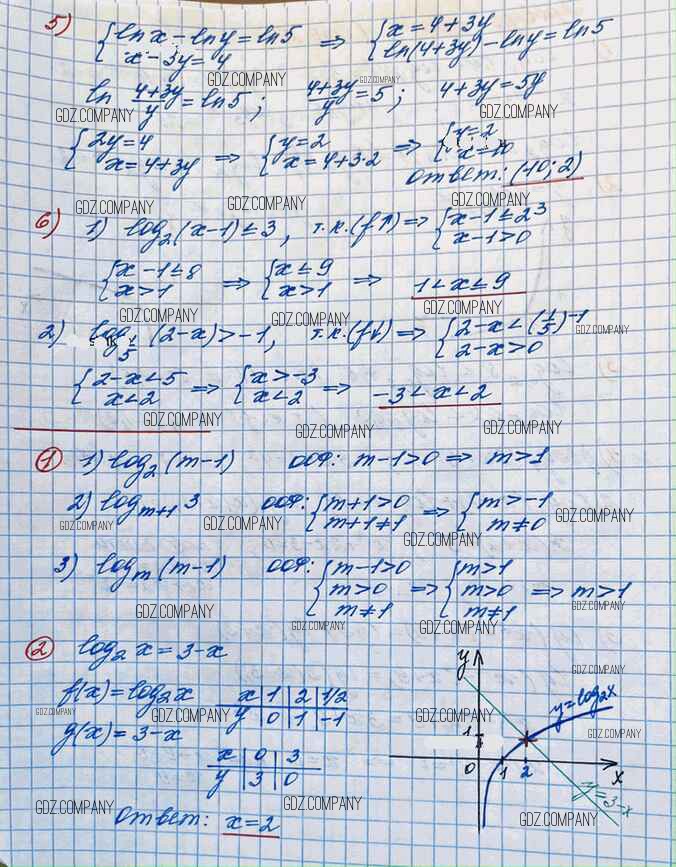 5) { ln x - ln y = ln 5 ⇒ { x = 4 + 3y
x - 3y = 4 ln(4+3y) - ln y = ln 5
GDZ.COMPANY GDZ.COMPANY
ln (4+3y)/y = ln 5 ; (4+3y)/y = 5 ; 4 + 3y = 5y
GDZ.COMPANY GDZ.COMPANY
{ 2y = 4 ⇒ { y = 2 ⇒ { y = 2
x = 4 + 3y x = 4 + 3·2 x = 10
ответ: (10; 2)
GDZ.COMPANY GDZ.COMPANY GDZ.COMPANY
6) 1) log₂(x-1) ≤ 3, т.к. (f↑) ⇒ { x - 1 ≤ 2³
x - 1 > 0
{ x - 1 ≤ 8 ⇒ { x ≤ 9 ⇒ 1 < x ≤ 9
x > 1 x > 1
GDZ.COMPANY GDZ.COMPANY GDZ.COMPANY
2) log 1/5 (2-x) > -1, т.к. (f↓) ⇒ { 2 - x < (1/5)⁻¹
2 - x > 0
GDZ.COMPANY
{ 2 - x < 5 ⇒ { x > -3 ⇒ -3 < x < 2
x < 2 x < 2
GDZ.COMPANY GDZ.COMPANY GDZ.COMPANY
1 1) log₂(m-1) ООФ: m - 1 > 0 ⇒ m > 1
2) log m+1 3 ООФ: { m + 1 > 0 ⇒ { m > -1
m + 1 ≠ 1 m ≠ 0
GDZ.COMPANY GDZ.COMPANY GDZ.COMPANY GDZ.COMPANY
3) log m (m-1) ООФ: { m - 1 > 0 ⇒ { m > 1
m > 0 m > 0 ⇒ m > 1
m ≠ 1 m ≠ 1
GDZ.COMPANY GDZ.COMPANY GDZ.COMPANY GDZ.COMPANY
2 log₂ x = 3 - x
f(x) = log₂ x x | 1 | 2 | 1/2
y | 0 | 1 | -1
g(x) = 3 - x
x | 0 | 3
y | 3 | 0
GDZ.COMPANY GDZ.COMPANY GDZ.COMPANY
ответ: x = 2
y
GDZ.COMPANY
y = log₂x
GDZ.COMPANY
1
0 1 2 x
y = 3 - x
GDZ.COMPANY GDZ.COMPANY GDZ.COMPANY